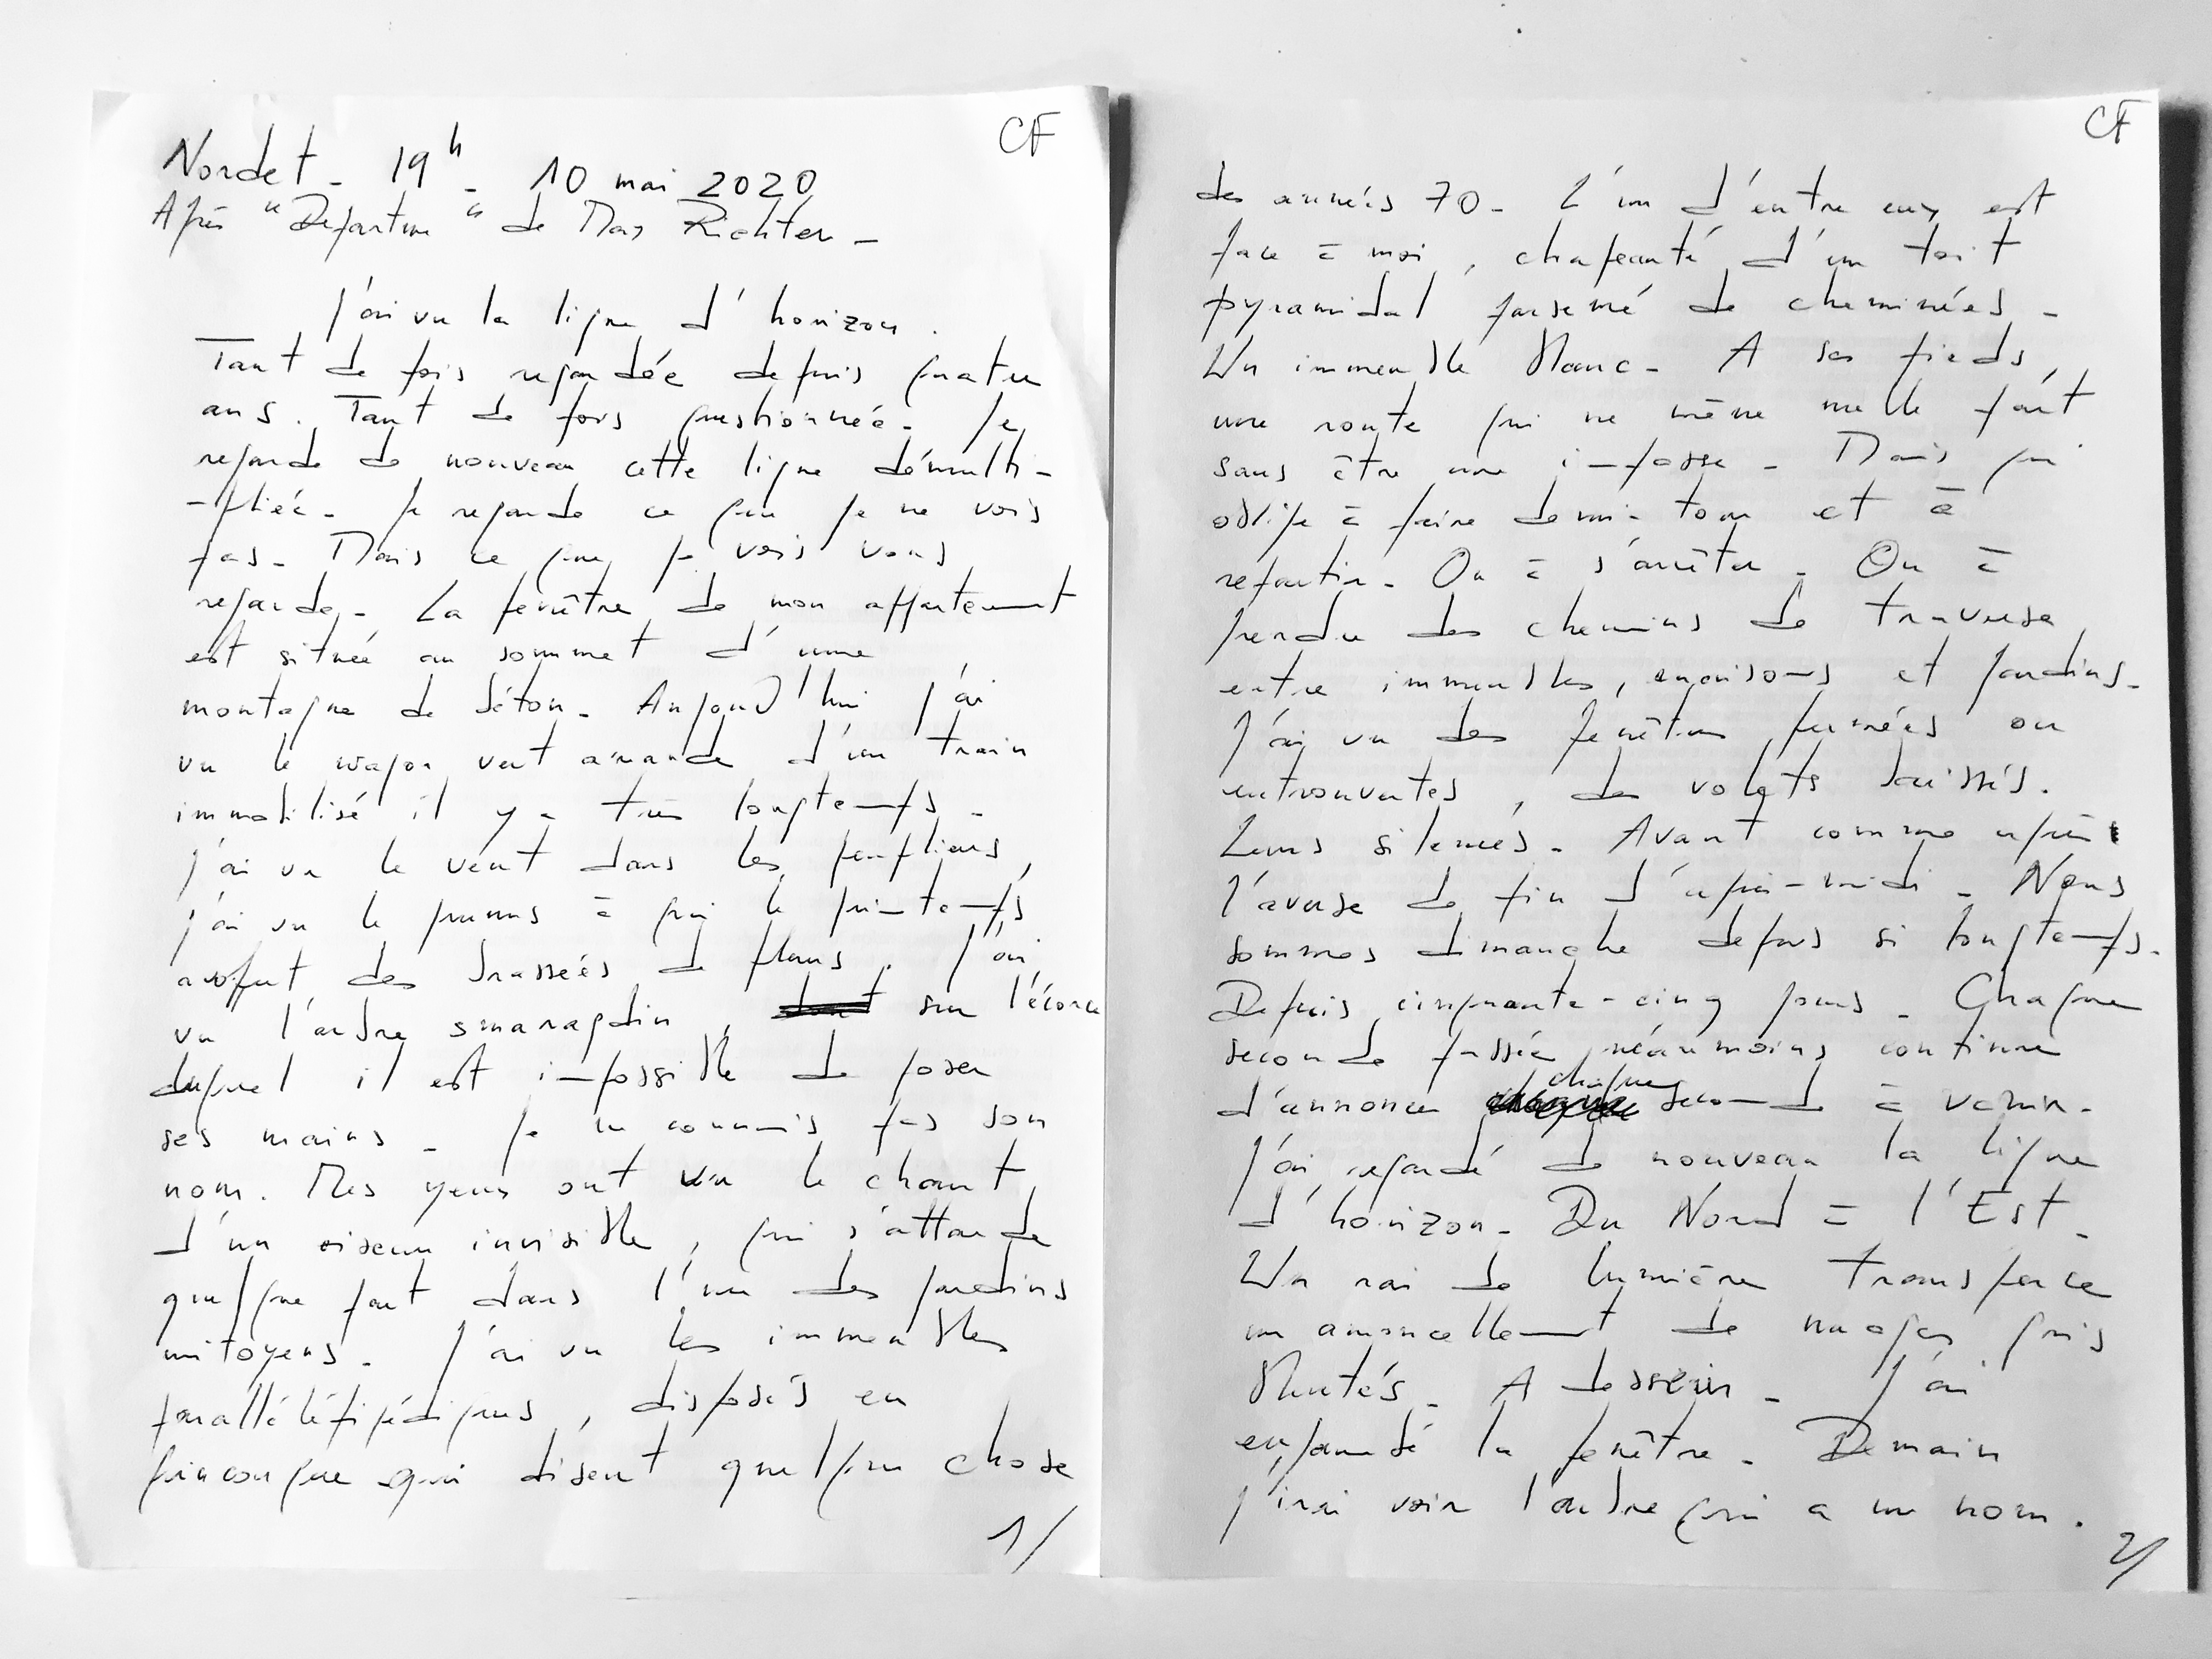 CF
Nordet - 19h - 10 mai 2020
Après "Departure" de Max Richter -
J'ai vu la ligne d'horizon.
Tant de fois regardée depuis quatre
ans. Tant de fois questionnée. Je
regarde de nouveau cette ligne démulti-
-pliée. Je regarde ce que je ne vois
pas. Mais ce que je vois vous
regarde. La fenêtre de mon appartement
est située au sommet d'une
montagne de béton. Aujourd'hui j'ai
vu le wagon vert amande d'un train
immobilisé il y a très longtemps.
J'ai vu le vent dans les peupliers,
j'ai vu le prunus à qui le printemps
offert des brassées de fleurs. J'ai
vu l'arbre smaragdin, sur l'écorce
duquel il est impossible de poser
ses mains. Je ne connais pas son
nom. Mes yeux ont vu le chant
d'un oiseau invisible, qui s'attarde
quelque part dans l'un des jardins
mitoyens. J'ai vu les immeubles
parallélépipédiques, disposés en
quinconque qui disent quelque chose
1/
CF
des années 70. L'un d'entre eux est
face à moi, chapeauté d'un toit
pyramidal parsemé de cheminées.
Un immeuble blanc. A ses pieds,
une route qui ne mène nulle part
sans être une impasse. Mais qui
oblige à faire demi-tour et à
repartir. Ou à s'arrêter. Ou à
prendre des chemins de traverse
entre immeubles, maisons et jardins.
J'ai vu des fenêtres fermées ou
entrouvertes, des volets baissés.
Leurs silences. Avant comme après
l'averse de fin d'après-midi. Nous
sommes dimanche depuis si longtemps.
Depuis cinquante-cinq jours. Chaque
seconde passée néanmoins continue
d'annoncer chaque seconde à venir.
J'ai regardé de nouveau la ligne
d'horizon. Du Nord à l'Est.
Un rai de lumière transperce
un amoncellement de nuages gris
bleutés. A dessein. J'ai
enjambé la fenêtre. Demain
j'irai voir l'arbre qui a un nom.
2/